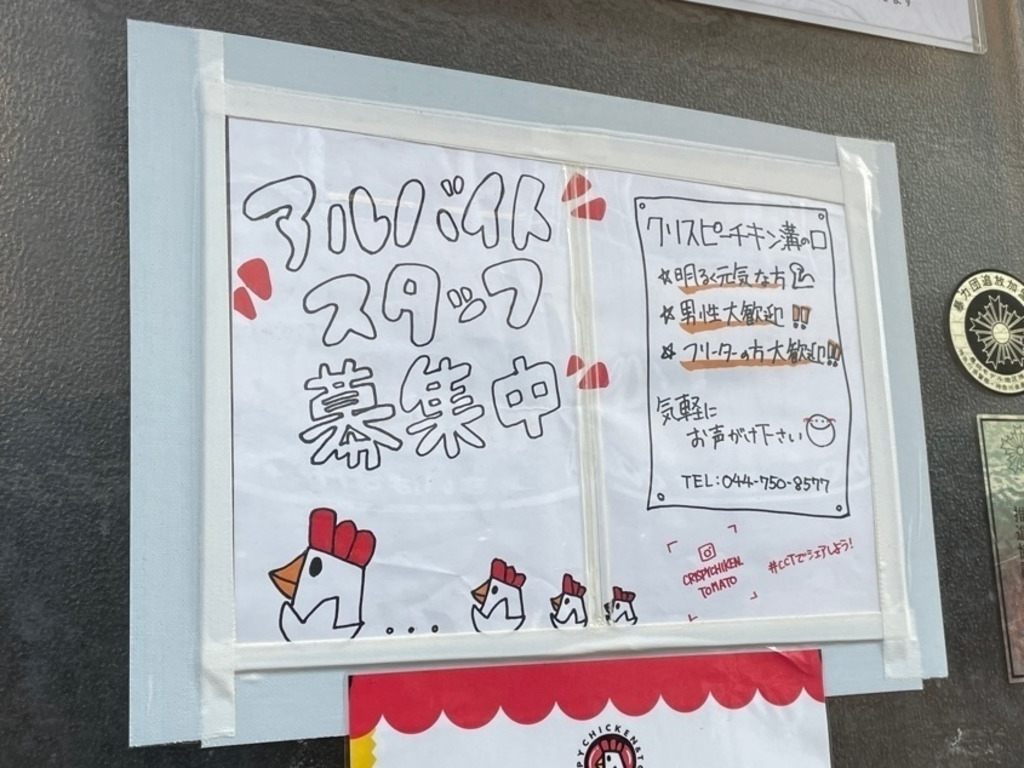 アルバイト
スタッフ
募集中
クリスピーチキン溝の口
☆明るく元気な方
☆男性大歓迎!!
☆フリーターの方大歓迎!!
気軽に
お声がけ下さい
TEL:044-750-8577
CRISPYCHIKEN.
TOMATO
#CCTでシェアしよう!
PYCHICKEN&TO
暴力団追放加